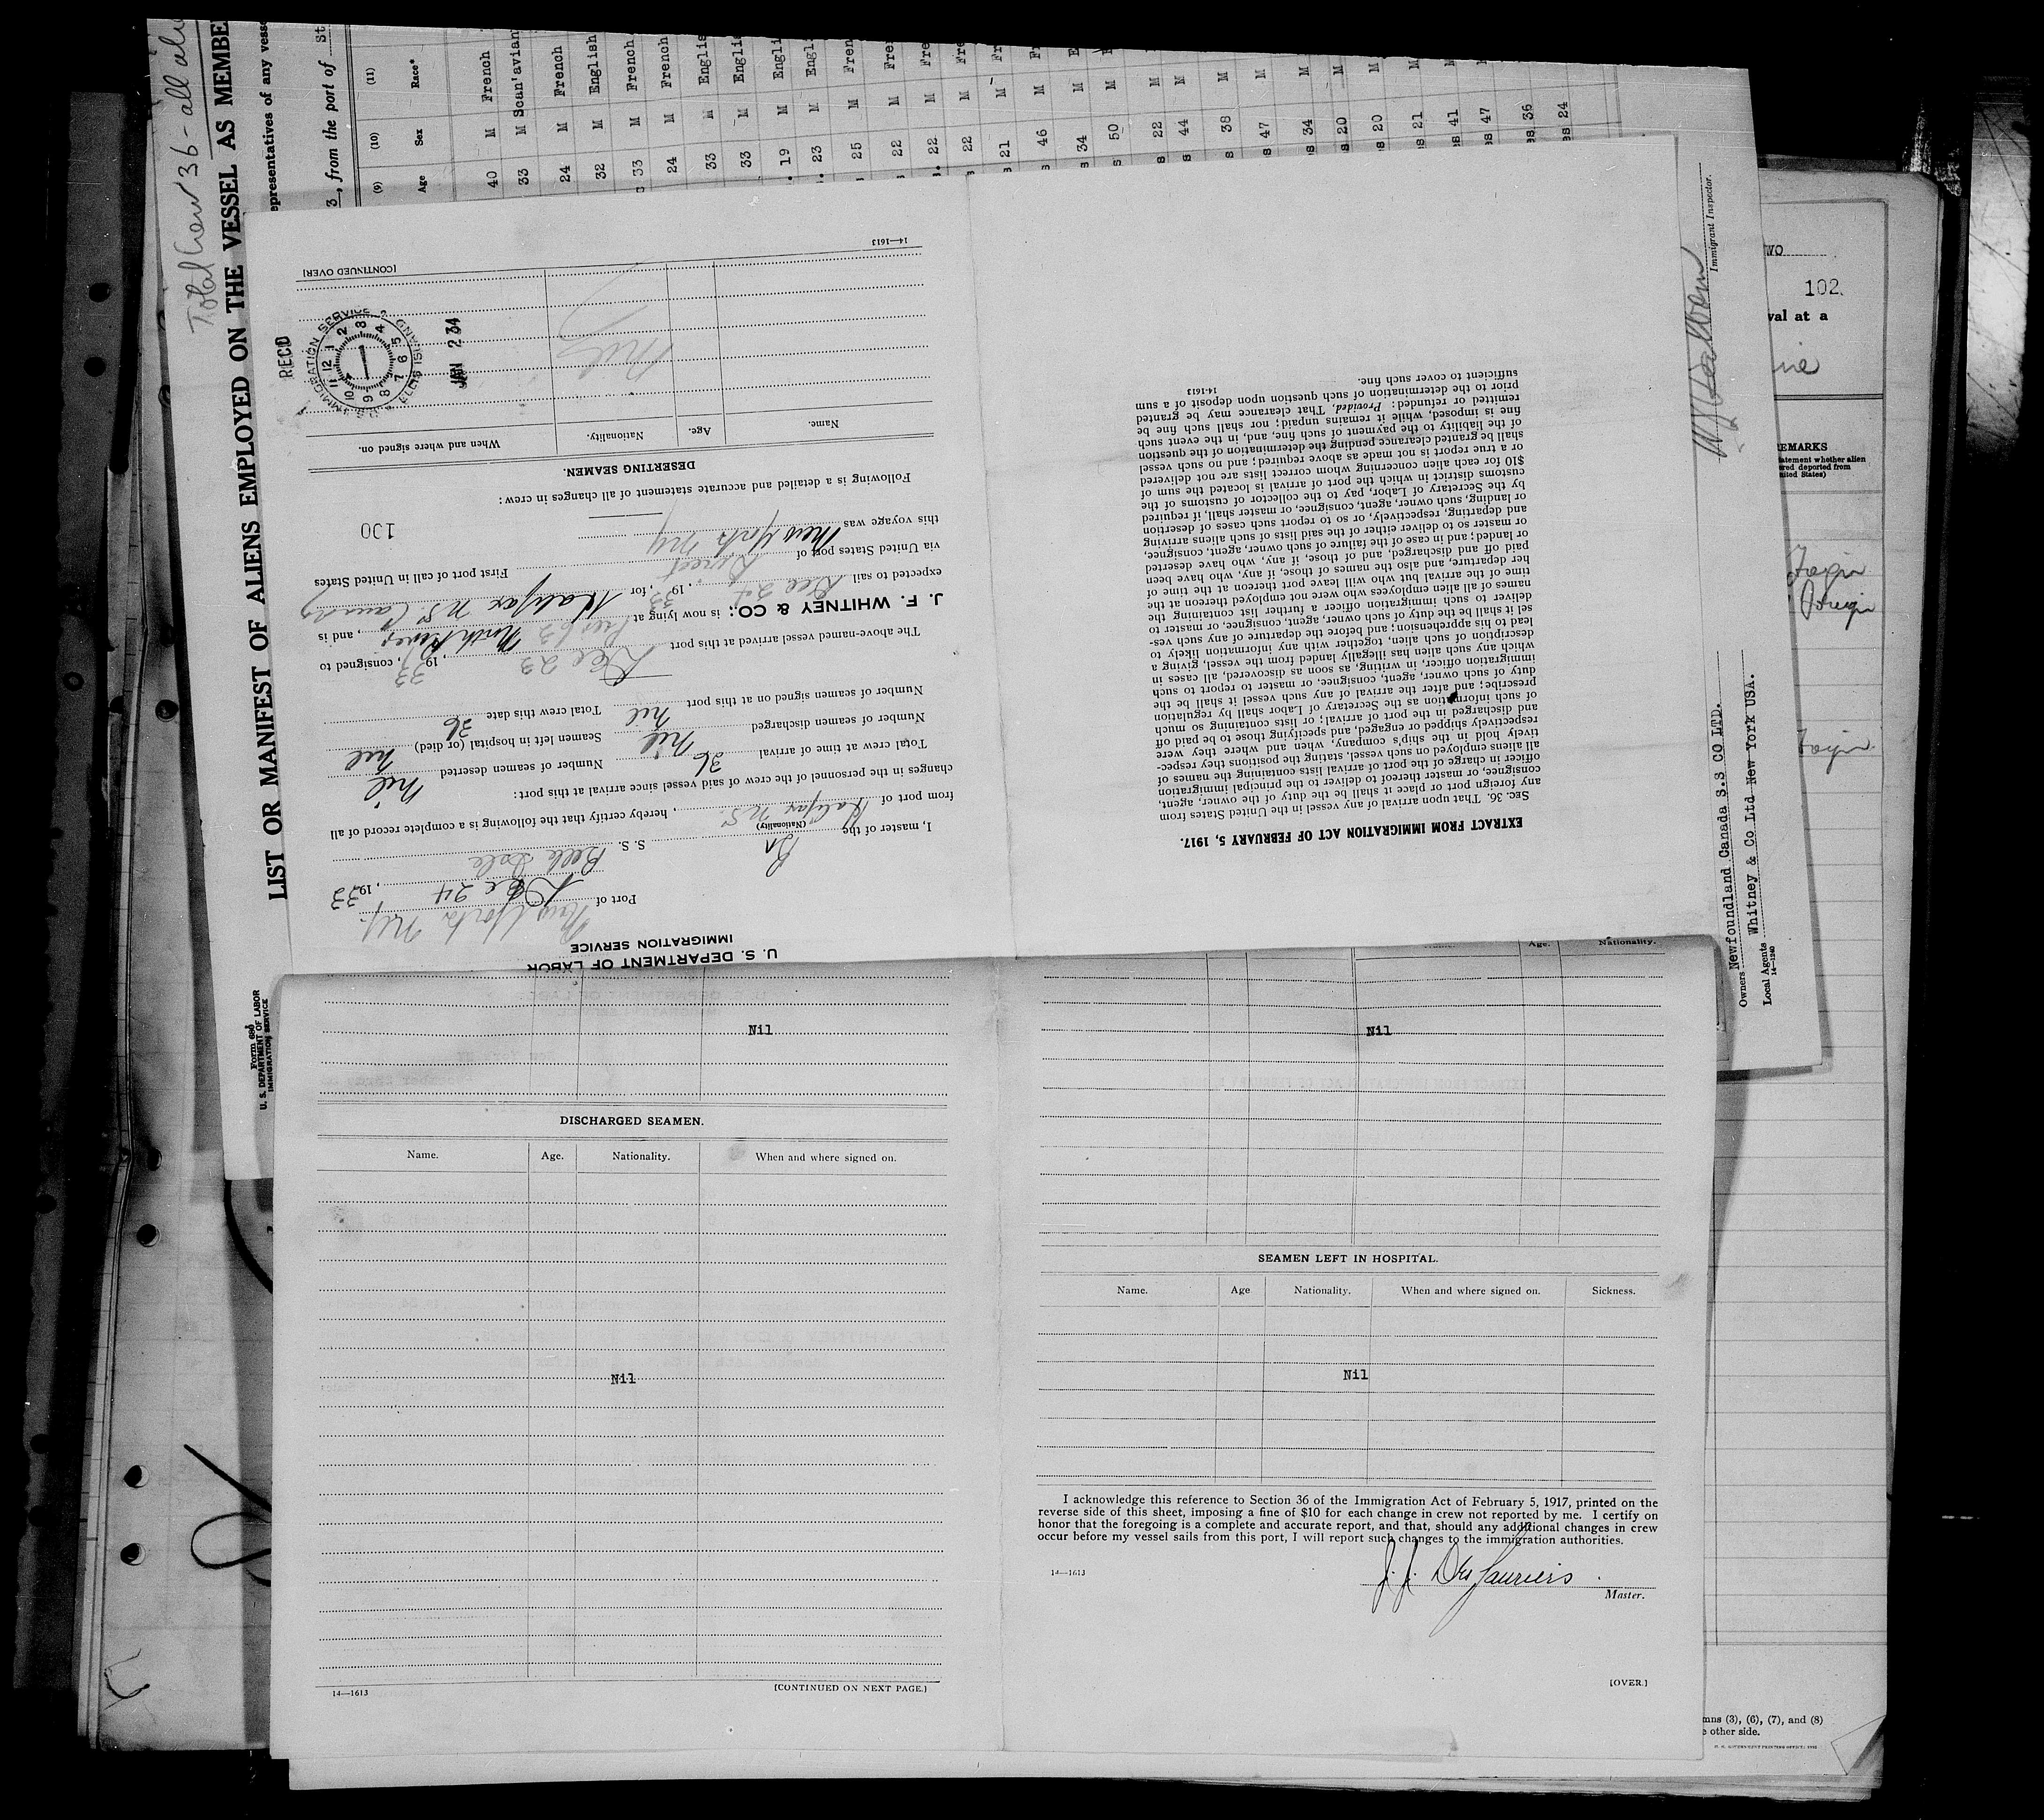 Total Crew 36 - all
LIST OR MANIFEST OF ALIENS EMPLOYED ON THE VESSEL AS MEMBE
epresentatives of any vess
3, from the port of St
(9) (10) (11)
Age Sex Race*
40 M French
33 M Scan'avian
24 M French
32 M English
33 M French
24 M French
33 M Englis
33 M Englis
19 M Engli
23 M Engl
25 M Fren
22 M Fre
22 M Fre
22 M Fre
21 M Fr
46 M F
34 M E
50 M
22 M
44 M
38 M
47 M
34 M
20 M
20 M
21 M
41
47
36
24
Form 689
U. S. DEPARTMENT OF LABOR
IMMIGRATION SERVICE
Immigrant Inspector.
Owners Newfoundland Canada S.S CO LTD.
Local Agents Whitney & Co Ltd New York USA.
14—1240
U. S. DEPARTMENT OF LABOR
IMMIGRATION SERVICE
Port of New York N.Y.
Dec 24, 1933
I, master of the Br S. S. Belle Isle
(Nationality)
from port of Halifax N.S., hereby certify that the following is a complete record of all
changes in the personnel of the crew of said vessel since arrival at this port:
Total crew at time of arrival 36 Number of seamen deserted nil
Number of seamen discharged nil Seamen left in hospital (or died) nil
Number of seamen signed on at this port nil Total crew this date 36
The above-named vessel arrived at this port Dec 23, 1933, consigned to
J. F. WHITNEY & CO.; is now lying at Pier 63 North River, and is
expected to sail Dec 24, 1933, for Halifax N.S. Canada
via United States port of Direct First port of call in United States
this voyage was New York NY
100
Following is a detailed and accurate statement of all changes in crew:
DESERTING SEAMEN.
Name. Age. Nationality. When and where signed on.
Nil
REC'D
U.S. IMMIGRATION SERVICE
ELLIS ISLAND
JAN 2 34
[CONTINUED OVER]
14—1613
EXTRACT FROM IMMIGRATION ACT OF FEBRUARY 5, 1917.
SEC. 36. That upon arrival of any vessel in the United States from
any foreign port or place it shall be the duty of the owner, agent,
consignee, or master thereof to deliver to the principal immigration
officer in charge of the port of arrival lists containing the names of
all aliens employed on such vessel, stating the positions they respec-
tively hold in the ship's company, when and where they were
respectively shipped or engaged, and specifying those to be paid off
and discharged in the port of arrival; or lists containing so much
of such information as the Secretary of Labor shall by regulation
prescribe; and after the arrival of any such vessel it shall be the
duty of such owner, agent, consignee, or master to report to such
immigration officer, in writing, as soon as discovered, all cases in
which any such alien has illegally landed from the vessel, giving a
description of such alien, together with any information likely to
lead to his apprehension; and before the departure of any such ves-
sel it shall be the duty of such owner, agent, consignee, or master to
deliver to such immigration officer a further list containing the
names of all alien employees who were not employed thereon at the
time of the arrival but who will leave port thereon at the time of
her departure, and also the names of those, if any, who have been
paid off and discharged, and of those, if any, who have deserted
or landed; and in case of the failure of such owner, agent, consignee,
or master so to deliver either of the said lists of such aliens arriving
and departing, respectively, or so to report such cases of desertion
or landing, such owner, agent, consignee, or master shall, if required
by the Secretary of Labor, pay to the collector of customs of the
customs district in which the port of arrival is located the sum of
$10 for each alien concerning whom correct lists are not delivered
or a true report is not made as above required; and no such vessel
shall be granted clearance pending the determination of the question
of the liability to the payment of such fine, and, in the event such
fine is imposed, while it remains unpaid; nor shall such fine be
remitted or refunded: Provided, That clearance may be granted
prior to the determination of such question upon deposit of a sum
sufficient to cover such fine.
14-1613
Nil
DISCHARGED SEAMEN.
Name. Age. Nationality. When and where signed on.
Nil
14—1613 [CONTINUED ON NEXT PAGE.]
Age. Nationality.
Nil
SEAMEN LEFT IN HOSPITAL.
Name. Age Nationality. When and where signed on. Sickness.
Nil
I acknowledge this reference to Section 36 of the Immigration Act of February 5, 1917, printed on the
reverse side of this sheet, imposing a fine of $10 for each change in crew not reported by me. I certify on
honor that the foregoing is a complete and accurate report, and that, should any additional changes in crew
occur before my vessel sails from this port, I will report such changes to the immigration authorities.
14—1613
J. J. DesLauriers
Master.
[OVER.]
WO
102
val at a
EMARKS
atement whether alien
ered deported from
nited States)
Foreign
mns (3), (6), (7), and (8)
e other side.